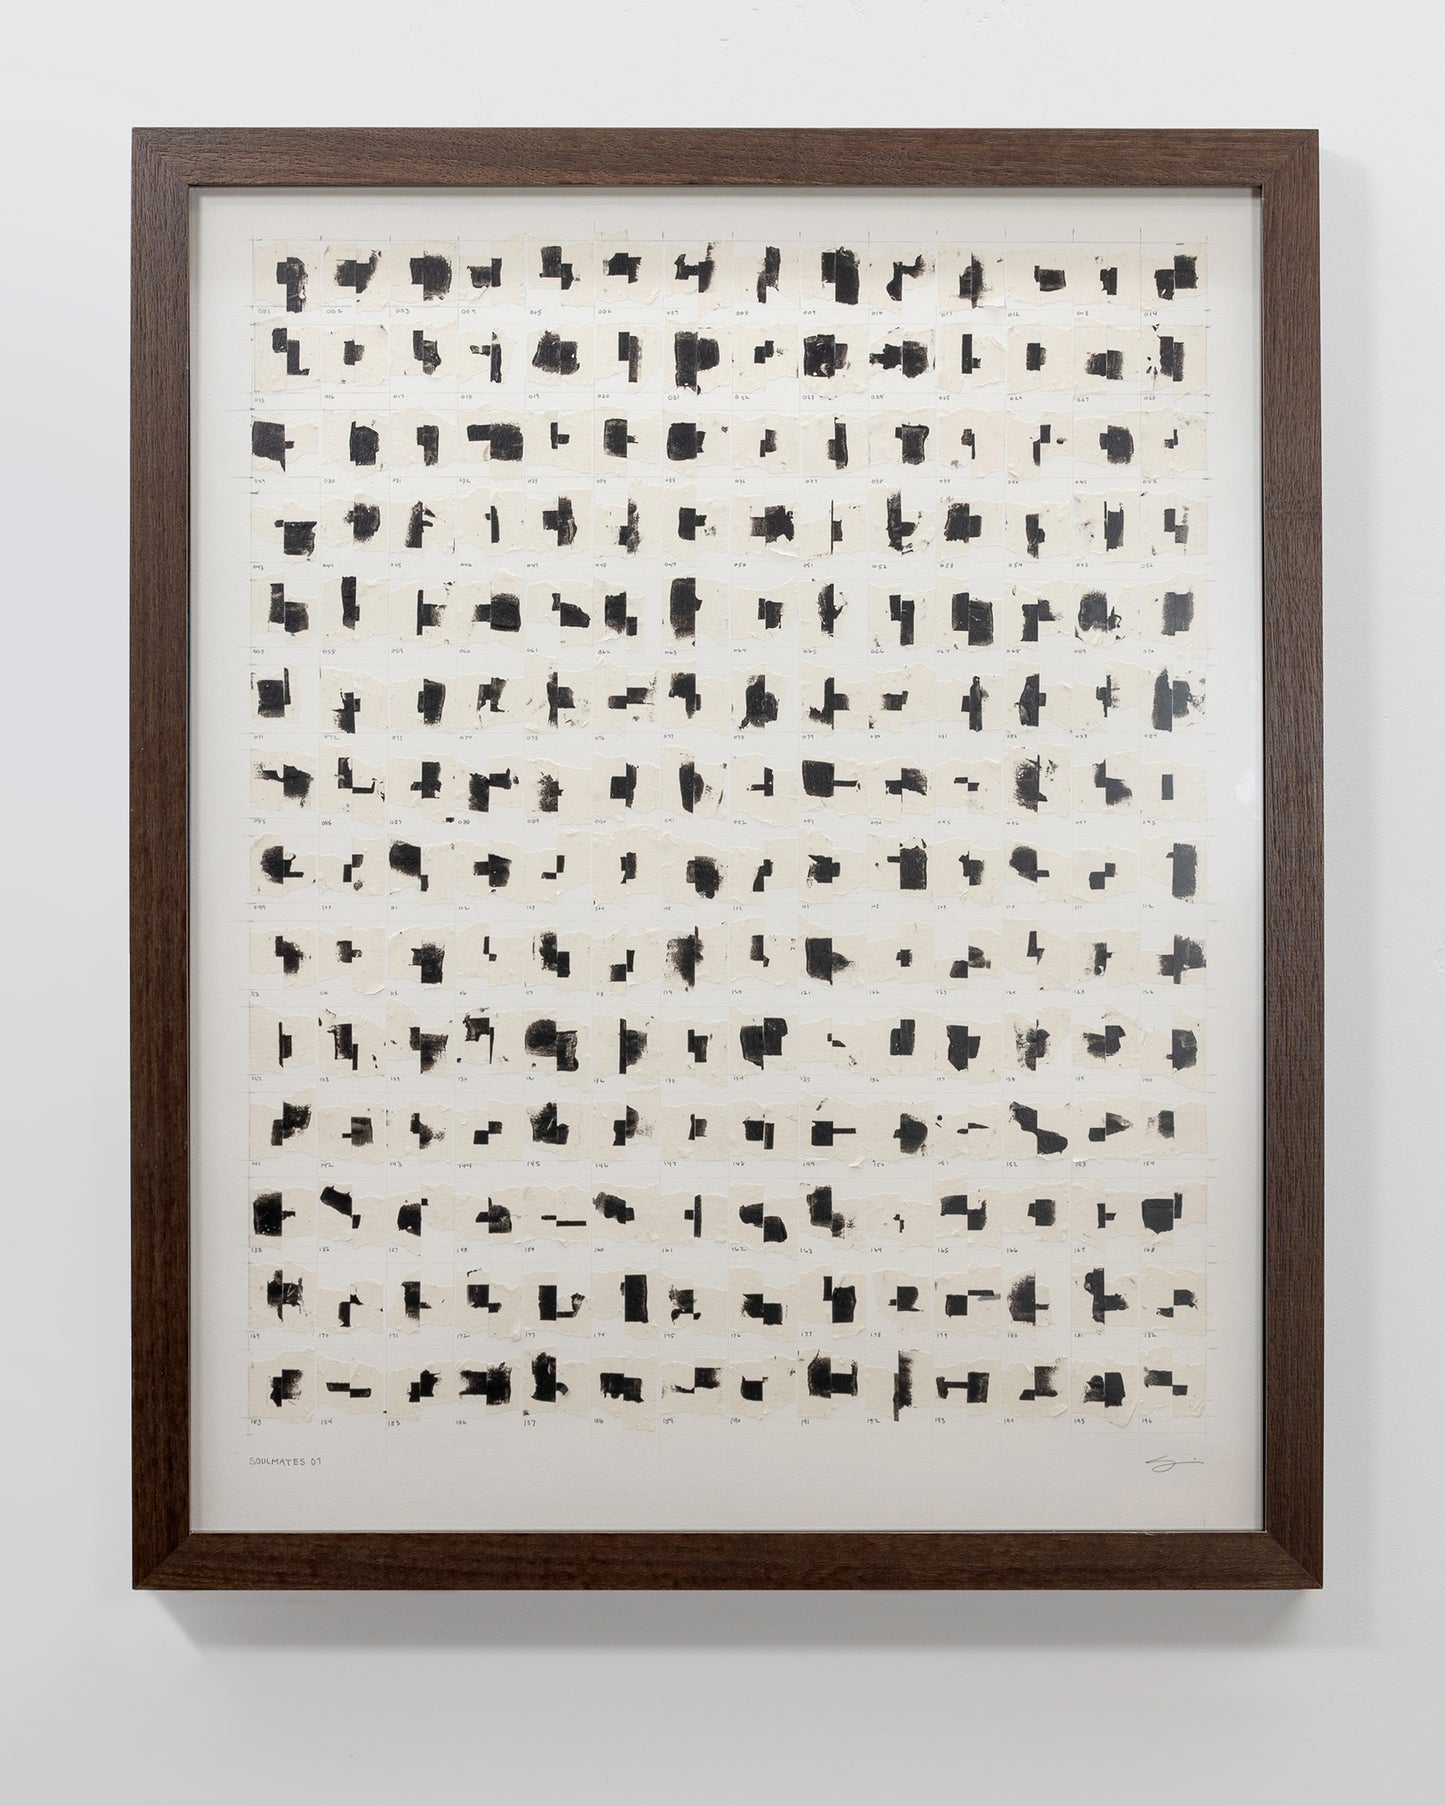 001 002 003 004 005 006 007 008 009 010 011 012 013 014
015 016 017 018 019 020 021 022 023 024 025 026 027 028
029 030 031 032 033 034 035 036 037 038 039 040 041 042
043 044 045 046 047 048 049 050 051 052 053 054 055 056
057 058 059 060 061 062 063 064 065 066 067 068 069 070
071 072 073 074 075 076 077 078 079 080 081 082 083 084
085 086 087 088 089 090 091 092 093 094 095 096 097 098
099 100 101 102 103 104 105 106 107 108 109 110 111 112
113 114 115 116 117 118 119 120 121 122 123 124 125 126
127 128 129 130 131 132 133 134 135 136 137 138 139 140
141 142 143 144 145 146 147 148 149 150 151 152 153 154
155 156 157 158 159 160 161 162 163 164 165 166 167 168
169 170 171 172 173 174 175 176 177 178 179 180 181 182
183 184 185 186 187 188 189 190 191 192 193 194 195 196
SOULMATES 07